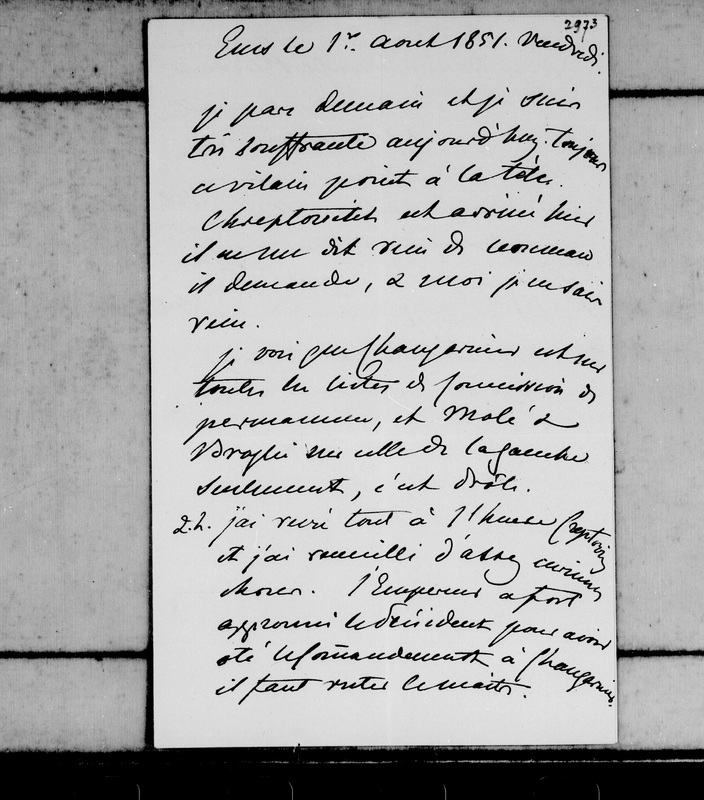 2973
Ems le 1er aout 1851. Vendredi.
je pars demain et je suis
très souffrante aujourd'huy. toujours
ce vilain point à la tête.
Chreptovitch est arrivé hier
il ne me dit rien de nouveau
il demande, & moi je ne sais
rien.
je vois que Changarnier est sur
toutes les listes de commission de
permanence, et Molé &
Broglie sur celle de la gauche
seulement, c'est drôle.
2.h. j'ai revu tout à l'heure Creptovitch
et j'ai recueilli d'assez curieuses
choses. l'Empereur a fort
approuvé le Président pour avoir
oté le Commandement à Changarnier.
il faut rester le maître.